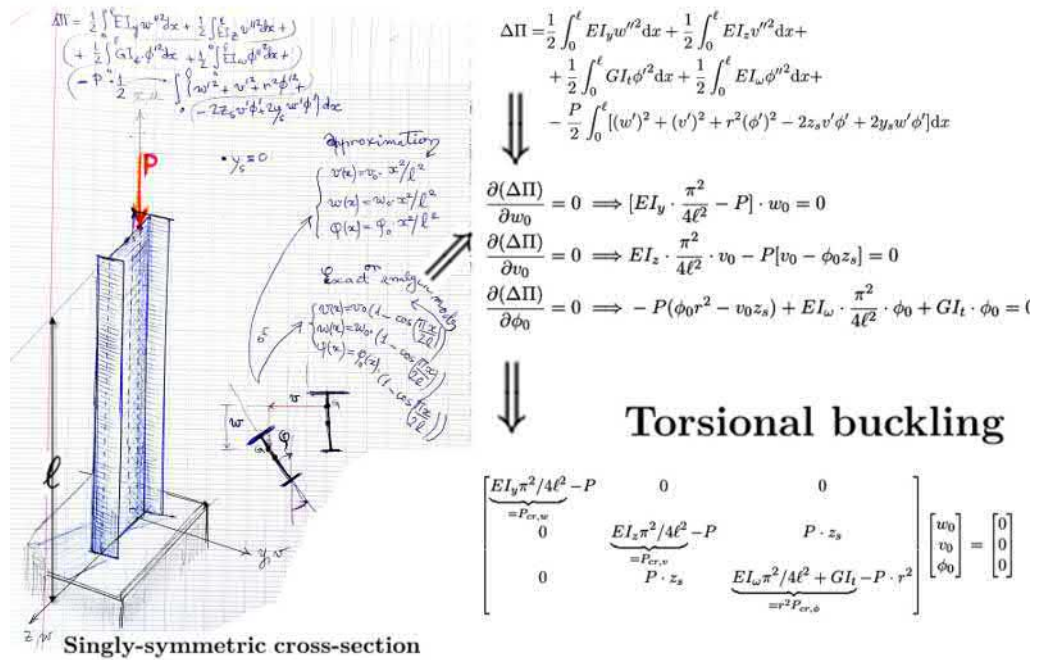 ΔΠ = 1/2 ∫₀^ℓ EI_y w''² dx + 1/2 ∫₀^ℓ EI_z v''² dx +
( + 1/2 ∫₀^ℓ GI_t ϕ'² dx + 1/2 ∫₀^ℓ EI_ω ϕ''² dx +
- P · 1/2 ∫₀^ℓ [ w'² + v'² + r² ϕ'² +
- 2z_s v'ϕ' + 2y_s w'ϕ' ] dx
P
• y_s = 0
approximation
v(x) = v₀ · x²/ℓ²
w(x) = w₀ · x²/ℓ²
φ(x) = φ₀ · x²/ℓ²
Exact or
v(x) = v₀ (1 - cos(πx/2ℓ))
w(x) = w₀ · (1 - cos(πx/2ℓ))
φ(x) = φ₀(x) · (1 - cos(πx/2ℓ))
v
w
φ
G
G
ℓ
y,v
z,w
Singly-symmetric cross-section
ΔΠ = 1/2 ∫₀^ℓ EI_y w''² dx + 1/2 ∫₀^ℓ EI_z v''² dx +
+ 1/2 ∫₀^ℓ GI_t ϕ'² dx + 1/2 ∫₀^ℓ EI_ω ϕ''² dx +
- P/2 ∫₀^ℓ [(w')² + (v')² + r²(ϕ')² - 2z_s v'ϕ' + 2y_s w'ϕ'] dx
∂(ΔΠ)/∂w₀ = 0 ⟹ [EI_y · π²/4ℓ² - P] · w₀ = 0
∂(ΔΠ)/∂v₀ = 0 ⟹ EI_z · π²/4ℓ² · v₀ - P[v₀ - ϕ₀z_s] = 0
∂(ΔΠ)/∂ϕ₀ = 0 ⟹ - P(ϕ₀r² - v₀z_s) + EI_ω · π²/4ℓ² · ϕ₀ + GI_t · ϕ₀ = 0
Torsional buckling
EI_y π²/4ℓ² - P 0 0
=P_cr,w
0 EI_z π²/4ℓ² - P P · z_s [w₀ v₀ ϕ₀] = [0 0 0]
=P_cr,v
0 P · z_s EI_ω π²/4ℓ² + GI_t - P · r²
=r²P_cr,ϕ